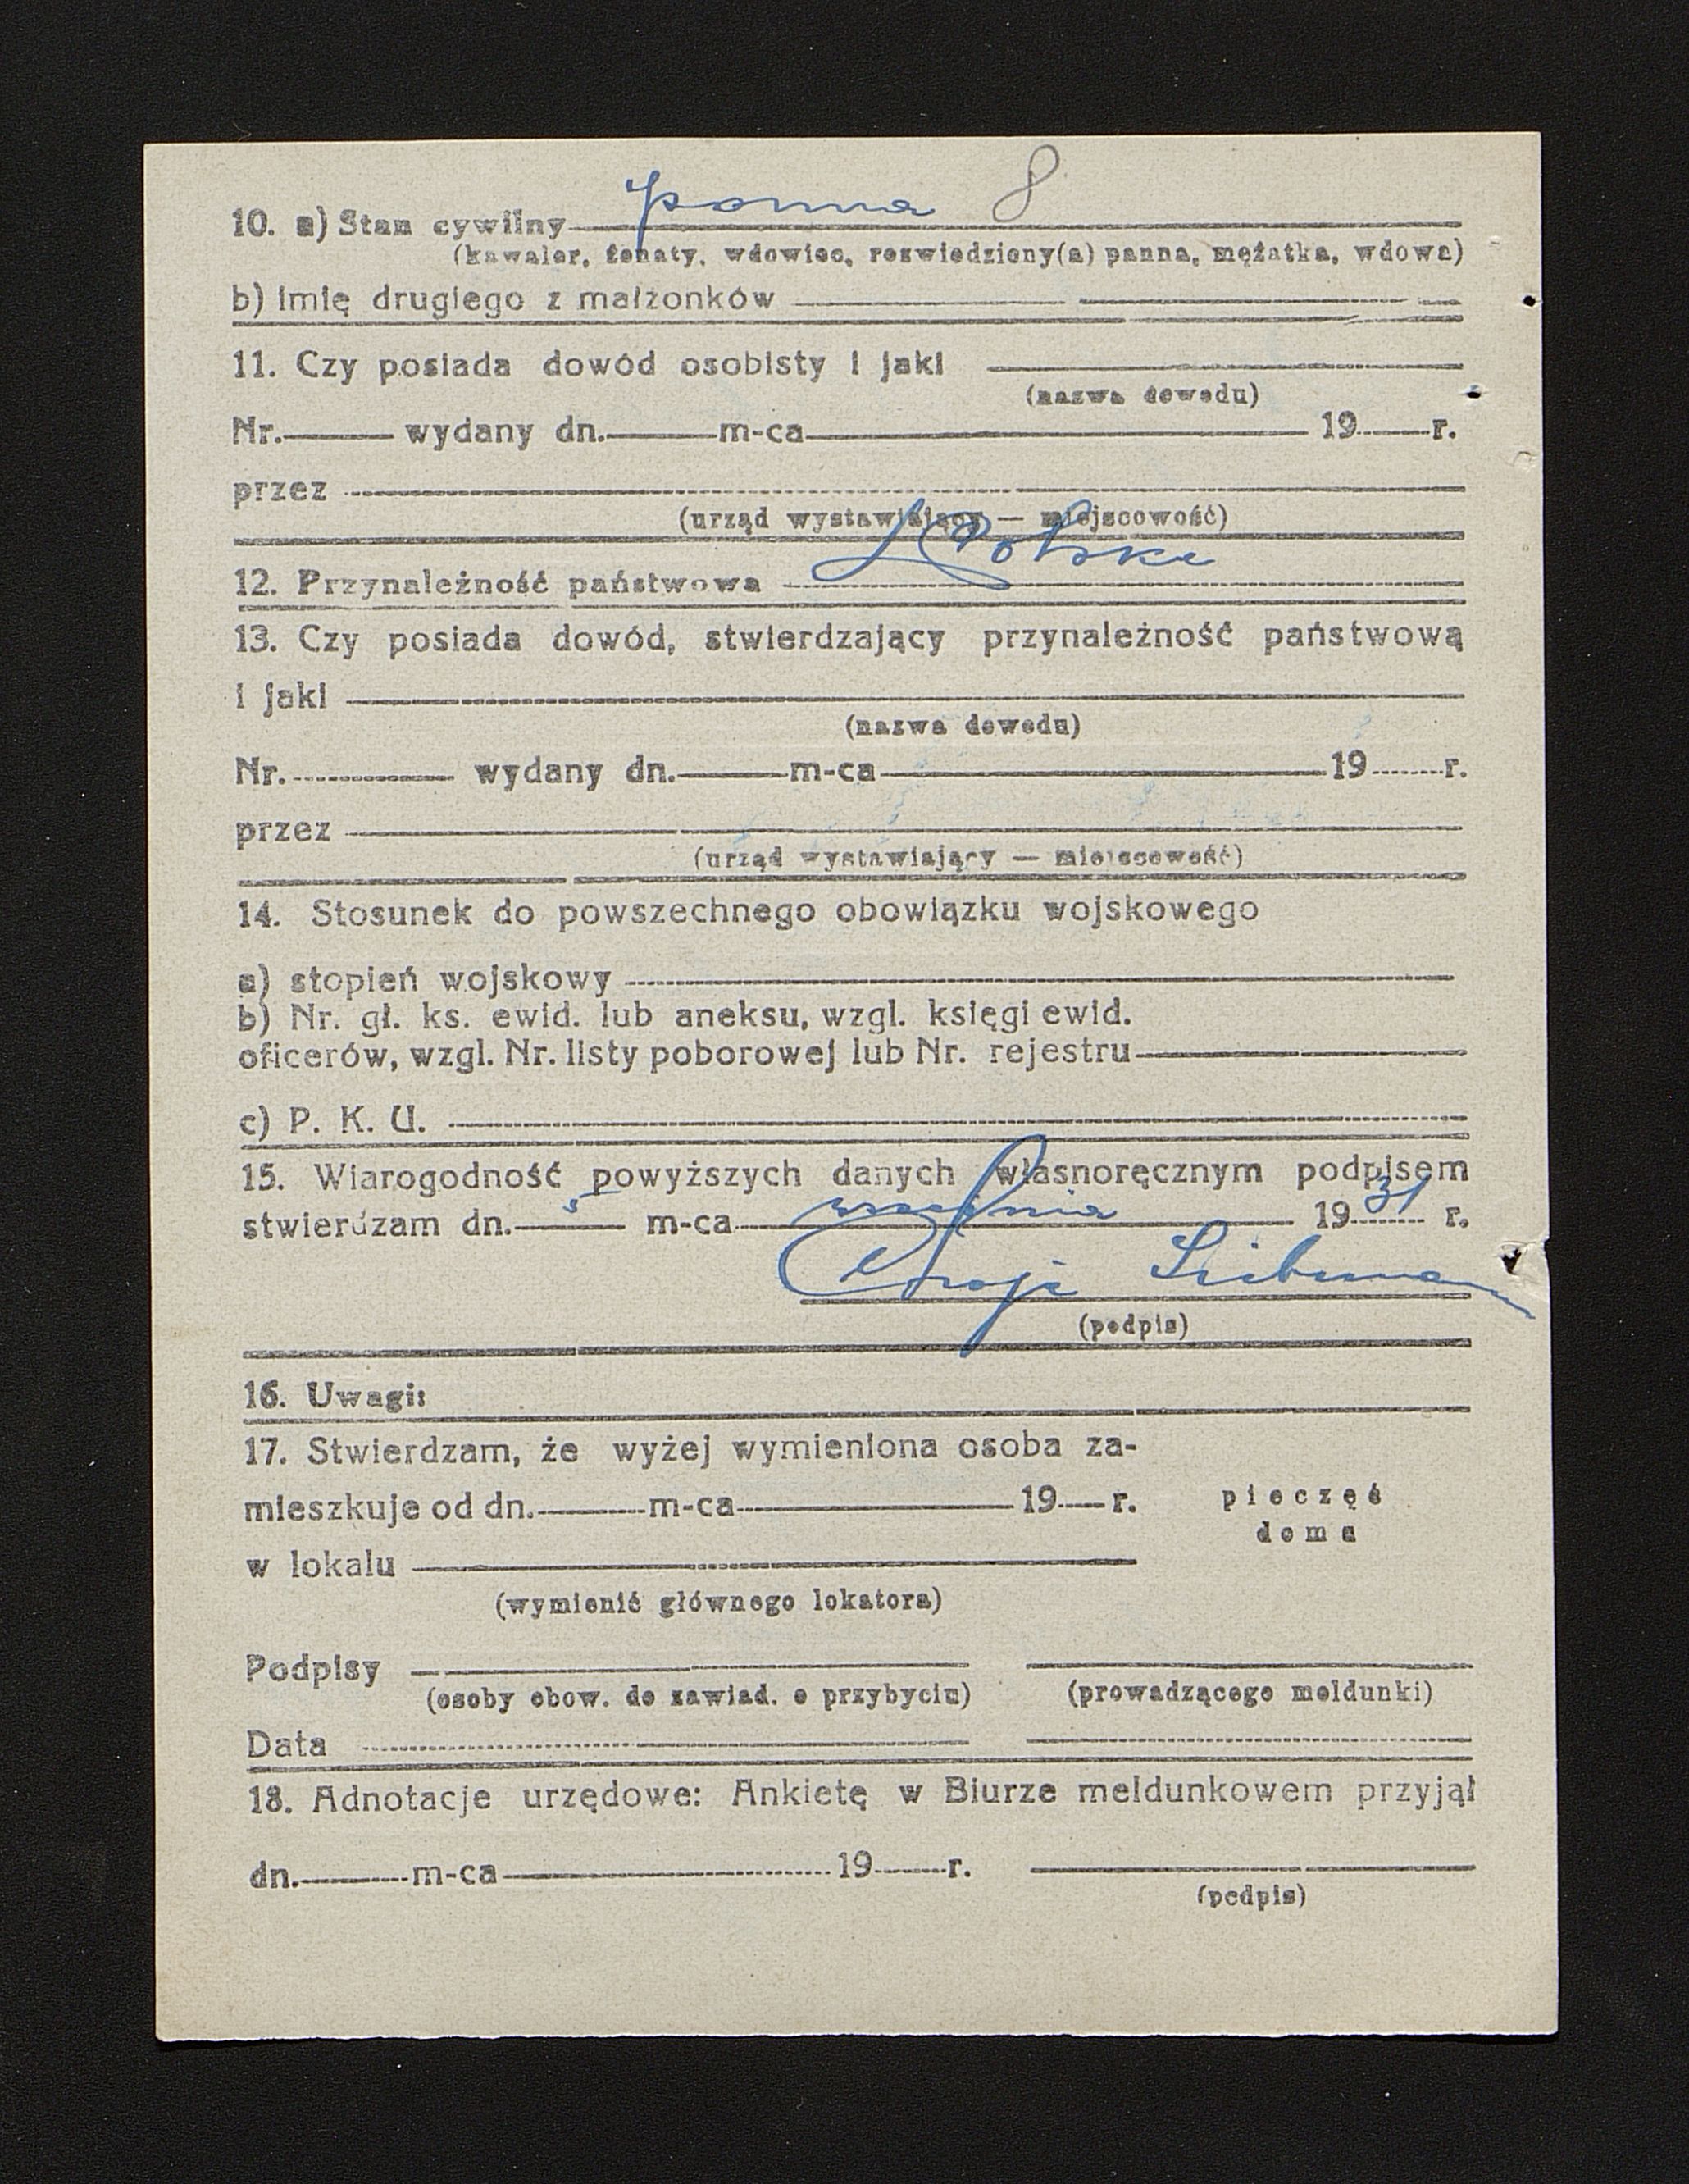 10. a) Stan cywilny panna 8
(kawaler, żonaty, wdowiec, rozwiedziony(a) panna, mężatka, wdowa)
b) imię drugiego z małżonków
11. Czy posiada dowód osobisty i jaki
(nazwa dowodu)
Nr. wydany dn. m-ca 19 r.
przez
(urząd wystawiający — miejscowość)
12. Przynależność państwowa Polska
13. Czy posiada dowód, stwierdzający przynależność państwową
i jaki
(nazwa dowodu)
Nr. wydany dn. m-ca 19 r.
przez
(urząd wystawiający — miejscowość)
14. Stosunek do powszechnego obowiązku wojskowego
a) stopień wojskowy
b) Nr. gł. ks. ewid. lub aneksu, wzgl. księgi ewid.
oficerów, wzgl. Nr. listy poborowej lub Nr. rejestru
c) P. K. U.
15. Wiarogodność powyższych danych własnoręcznym podpisem
stwierdzam dn. 5 m-ca września 1931 r.
Chaja Liberman
(podpis)
16. Uwagi:
17. Stwierdzam, że wyżej wymieniona osoba za-
mieszkuje od dn. m-ca 19 r.
pieczęć
domu
w lokalu
(wymienić głównego lokatora)
Podpisy
(osoby obow. do zawiad. o przybyciu) (prowadzącego meldunki)
Data
18. Adnotacje urzędowe: Ankietę w Biurze meldunkowem przyjął
dn. m-ca 19 r.
(podpis)